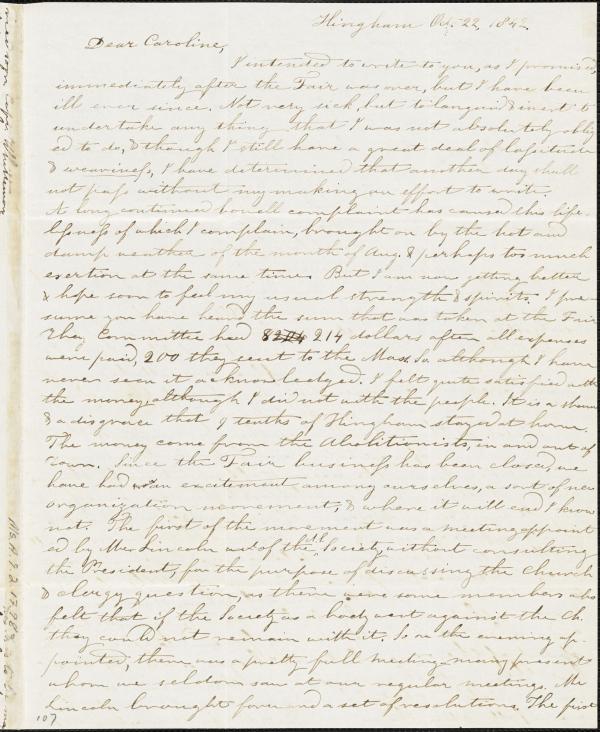 Hingham Oct. 22, 1842
Dear Caroline,
I intended to write to you, as I promised,
immediately after the Fair was over, but I have been
ill ever since. Not very sick, but to languid & inert to
undertake any thing that I was not absolutely oblig
ed to do, & though I still have a great deal of lassitude
& weariness, I have determined that another day shall
not pass without my making an effort to write.
A long continued bowell complaint has caused this life-
lessness of which I complain, brought on by the hot and
damp weather of the month of Aug. & perhaps too much
exertion at the same time. But I am now getting better
& hope soon to feel my usual strength & spirits. I pre-
sume you have heard the sum that was taken at the Fair
They Committee had 214 dollars after all expenses
were paid, 200 they sent to the Mass. So. although I have
never seen it acknowledged. I felt quite satisfied with
the money, although I did not with the people. It is a shame
& a disgrace that 9 tenths of Hingham stayed at home.
The money come from the Abolitionists, in and out of
town. Since the Fair business has been closed, we
have had an excitement among ourselves, a sort of new
organization movement, & where it will end I know
not. The first of the movement was a meeting appoint
ed by Mr Lincoln of the Society, without consulting
the President, for the purpose of discussing the Church
& clergy question, as there were some members who
felt that if the Society as a body went against the Ch.
they could not remain with it. So on the evening ap-
pointed, there was a pretty full meeting many present
whom we seldom saw at our regular meetings. Mr
Lincoln brought forward a set of resolutions. The first
107